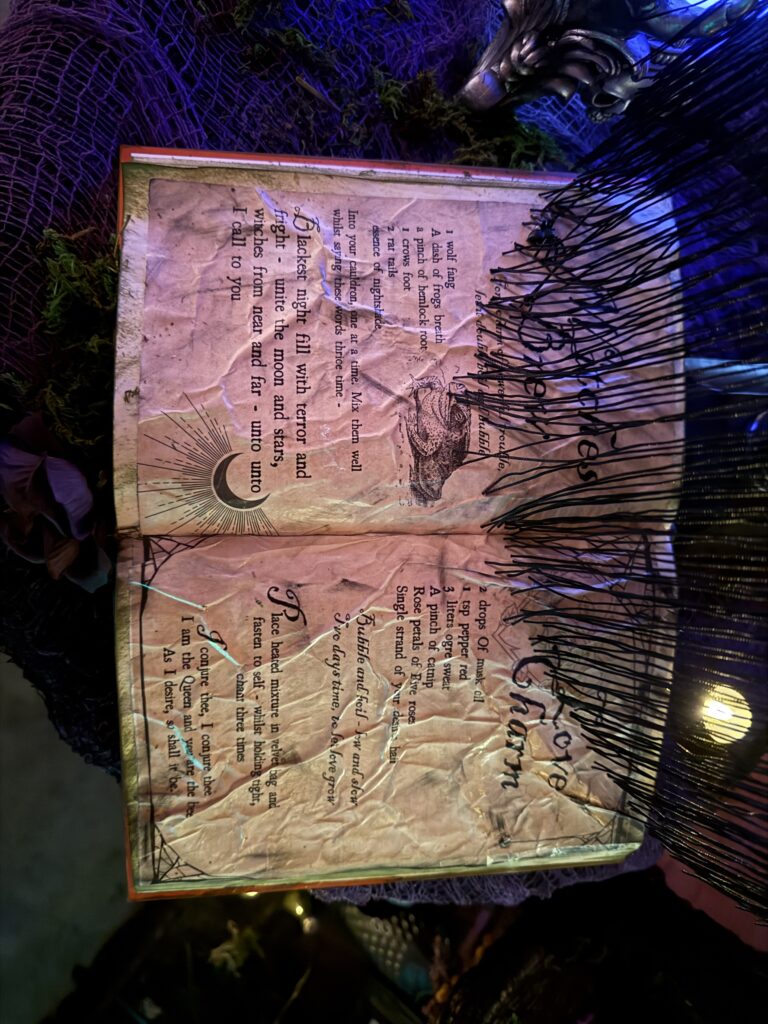 Witches
Brew
trouble,
bubble
1 wolf fang
A dash of frogs breath
a pinch of hemlock root
1 crows foot
2 rat tails
essence of nightshade
Into your cauldron, one at a time. Mix then well
whilst saying these words thrice time -
Blackest night fill with terror and
fright - unite the moon and stars,
witches from near and far - unto unto
I call to you
Love
Charm
2 drops Of musk oil
1 tsp pepper red
3 liters ogre sweat
A pinch of catnip
Rose petals of Five roses
Single strand of your own hair
Bubble and boil low and slow
Two days time, to let love grow
Place heated mixture in velvet bag and
fasten to self - whilst holding tight,
chant three times
I conjure thee, I conjure thee
I am the Queen and you are the bee
As I desire, so shall it be.